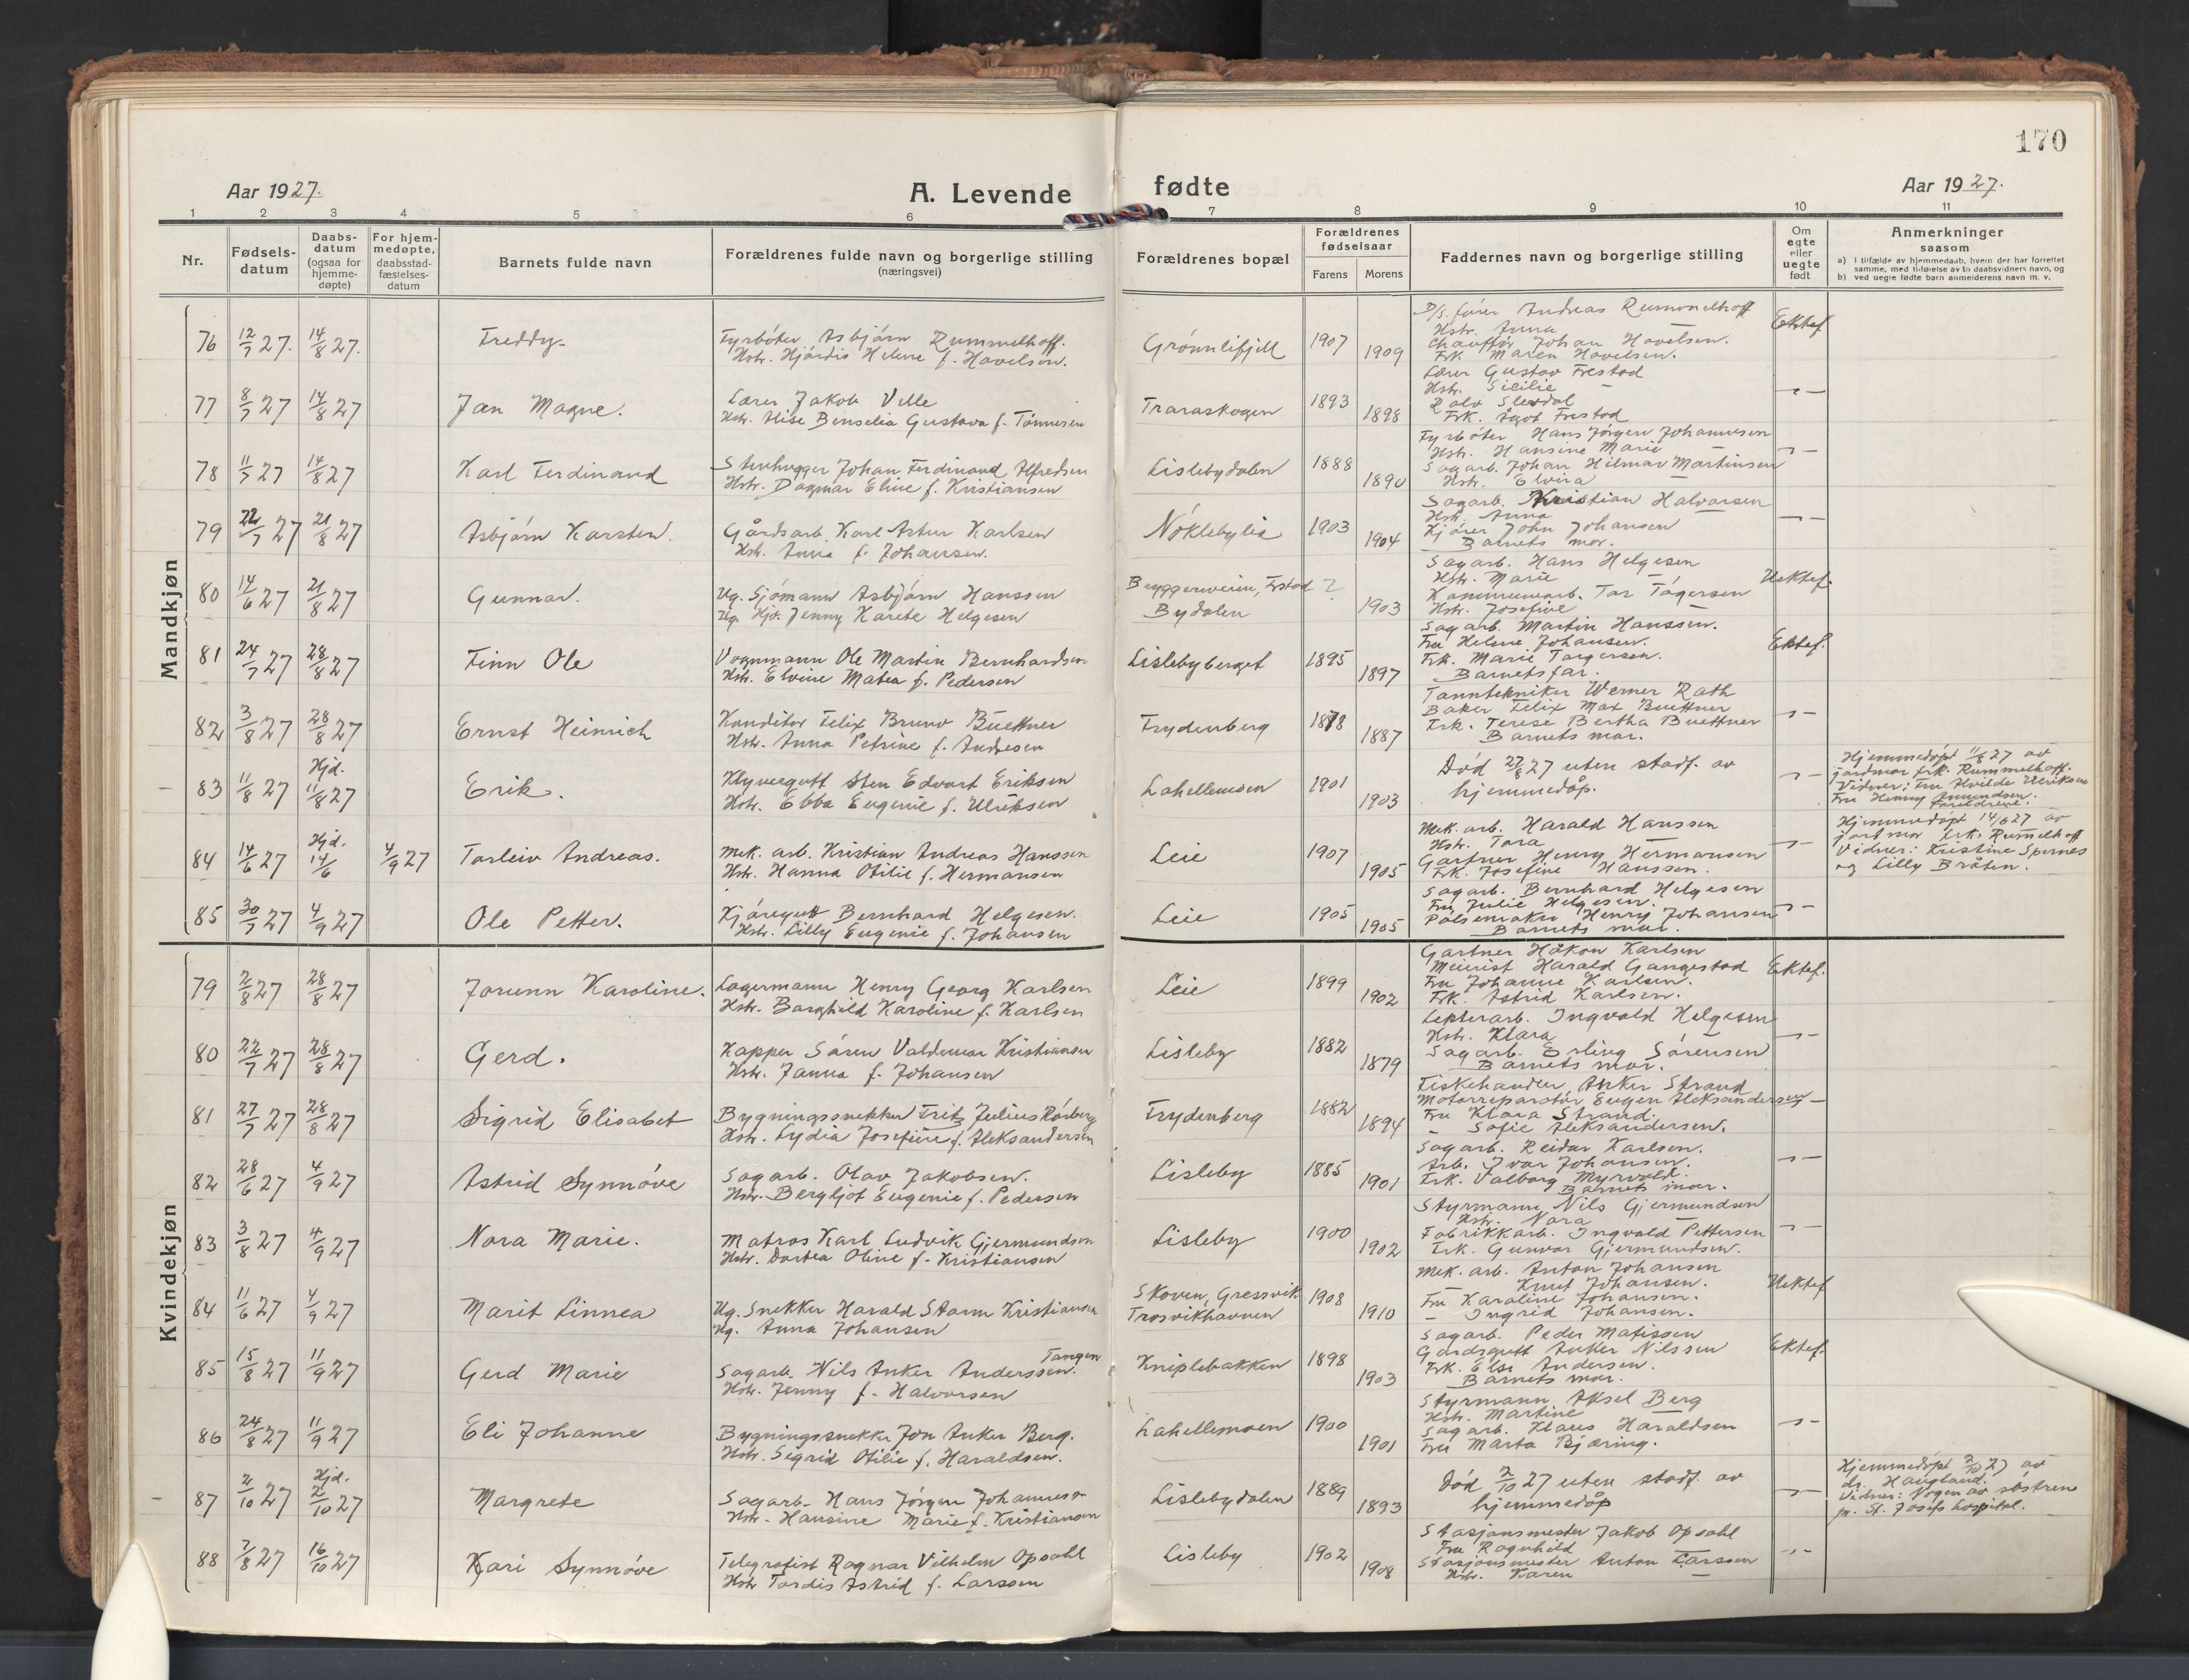 170
Aar 1927.
A. Levende fødte
Aar 1927.
1 2 3 4 5 6 7 8 9 10 11
Nr.
Fødsels-
datum
Daabs-
datum
(ogsaa for
hjemme-
døpte)
For hjem-
medøpte,
daabsstad-
fæstelses-
datum
Barnets fulde navn
Forældrenes fulde navn og borgerlige stilling
(næringsvei)
Forældrenes bopæl
Forældrenes
fødselsaar
Farens Morens
Faddernes navn og borgerlige stilling
Om
egte
eller
uegte
født
Anmerkninger
saasom
a) i tilfælde av hjemmedaab, hvem der har forrettet
samme, med tilføielse av to daabsvidners navn, og
b) ved uegte fødte barn anmelderens navn m. v.
Mandkjøn
76 12/7 27. 14/8 27. Freddy. Fyrbøter Asbjørn Rummelhoff.
Hstr. Hjørdis Helene f. Havelsen.
Grønnlifjell 1907 1909
D/S. fører Andreas Rummelhoff
Hstr. Anna
Chauffør Johan Havelsen.
Frk. Maren Havelsen.
Ektef.
77 8/7 27 14/8 27 Jan Magne. Lærer Jakob Velle
Hstr. Elise Benselia Gustava f. Tønnesen
Traraskogen 1893 1898
Lærer Gustav Frestad
Hstr. Sicilie
Rolv Slevdal
Frk. Ågot Frestad
78 11/7 27 14/8 27 Karl Ferdinand Stenhugger Johan Ferdinand Alfredsen
Hstr. Dagmar Eline f. Kristiansen
Lislebydalen 1888 1890
Fyrbøter Hans Jørgen Johannesen
Hstr. Hansine Marie
Sagarb. Johan Hilmar Martinsen
Hstr. Elvira
79 22/7 27 21/8 27 Asbjørn Karsten. Gårdsarb. Karl Artur Karlsen
Hstr. Anna f. Johansen.
Nøklebylia 1903 1904
Sagarb. Kristian Halvorsen
Hstr. Anna
Kjører John Johansen
Barnets mor.
80 14/6 27 21/8 27 Gunnar. Ug. Sjømann Asbjørn Hanssen
Ug. Hjv. Jenny Karete Helgesen
Byggerveien, Frstad
Bydalen
? 1903
Sagarb. Hans Helgesen
Hstr. Marie
Kommunearb. Tor Tågersen
Hstr. Josefine
Uektef.
81 24/7 27 28/8 27 Finn Ole Vognmann Ole Martin Bernhardsen
Hstr. Elvine Matea f. Pedersen
Lislebyberget 1895 1897
Sagarb. Martin Hanssen.
Fru Helene Johansen.
Frk. Marie Torgersen.
Barnets far.
Ektef.
82 3/8 27 28/8 27 Ernst Heinrich Konditor Felix Bruno Buettner
Hstr. Anna Petrine f. Andresen
Frydenberg 1878 1887
Tanntekniker Werner Rath
Baker Felix Max Buettner
Frk. Terese Bertha Buettner
Barnets mor.
83 11/8 27 Hjd. 11/8 27 Erik. Klyvergutt Sten Edvart Eriksen
Hstr. Ebba Eugenie f. Ulriksen
Lahellemoen 1901 1903
Død 27/8 27 uten stadf. av
hjemmedåp.
Hjemmedøpt 11/8 27 av
jordmor frk. Rummelhoff.
Vidner: Fru Alvilde Ulriksen
Fru Henny Amundsen.
Foreldrene.
84 14/6 27 Hjd. 14/6 4/9 27 Torleiv Andreas. Mek. arb. Kristian Andreas Hanssen
Hstr. Hanna Otilie f. Hermansen
Leie 1907 1905
Mek. arb. Harald Hanssen
Hstr. Tora
Gartner Henry Hermansen
Frk. Josefine Hanssen.
Hjemmedøpt 14/6 27 av
jordmor frk. Rummelhoff
Vidner: Kristine Spernes
og Lilly Bråten.
85 30/7 27 4/9 27 Ole Petter. Kjøregutt Bernhard Helgesen.
Hstr. Lilly Eugenie f. Johansen
Leie 1905 1905
Sagarb. Bernhard Helgesen
Fru Julie Helgesen.
Pølsemaker Henry Johansen
Barnets mor.
Kvindekjøn
79 2/8 27 28/8 27 Jorunn Karoline. Lagermann Henry Georg Karlsen
Hstr. Borghild Karoline f. Karlsen
Leie 1899 1902
Gartner Håkon Karlsen
Meierist Harald Gangestad
Fru Johanne Karlsen.
Frk. Astrid Karlsen.
Ektef.
80 22/7 27 28/8 27 Gerd. Kapper Søren Valdemar Kristiansen
Hstr. Janna f. Johansen
Lisleby 1882 1879
Lekterarb. Ingvald Helgesen
Hstr. Klara
Sagarb. Erling Sørensen
Barnets mor.
81 27/7 27 28/8 27 Sigrid Elisabet Bygningssnekker Fritz Julius Rørberg
Hstr. Lydia Josefine f. Aleksandersen
Frydenberg 1882 1894
Fiskehandler Anker Strand
Motorreparatør Eugen Aleksandersen
Fru Klara Strand.
– Sofie Aleksandersen.
82 28/6 27 4/9 27 Astrid Synnøve Sagarb. Olav Jakobsen.
Hstr. Bergljot Eugenie f. Pedersen
Lisleby 1885 1901
Sagarb. Reidar Karlsen.
Arb. Ivar Johansen.
Frk. Valborg Myrvold.
Barnets mor.
83 3/8 27 4/9 27 Nora Marie. Matros Karl Ludvik Gjermundsen
Hstr. Dortea Oline f. Kristiansen
Lisleby 1900 1902
Styrmann Nils Gjermundsen
Hstr. Nora
Fabrikkarb. Ingvald Pettersen
Frk. Gunvor Gjermundsen.
84 11/6 27 4/9 27 Marit Linnea Ug. Snekker Harald Storm Kristiansen
Ug. Anna Johansen
Skoven, Gressvik
Trosvikhavnen
1908 1910
Mek. arb. Anton Johansen
– Knut Johansen.
Fru Karoline Johansen.
– Ingrid Johansen.
Uektef.
85 15/8 27 11/9 27 Gerd Marie Sagarb. Nils Anker Anderssen. Tangen
Hstr. Jenny f. Halvorsen
Kniplebakken 1898 1903
Sagarb. Peder Matissen
Gårdsgutt Anker Nilssen
Frk. Else Andersen.
Barnets mor.
Ektef.
86 24/8 27 11/9 27 Eli Johanne Bygningssnekker Jon Anker Berg.
Hstr. Sigrid Otilie f. Haraldsen.
Lahellemoen 1900 1901
Styrmann Aksel Berg
Hstr. Martine
Sagarb. Klaus Haraldsen
Fru Marta Bjæring.
87 2/10 27 Hjd. 2/10 27 Margrete Sagarb. Hans Jørgen Johannesen
Hstr. Hansine Marie f. Kristiansen
Lislebydalen 1889 1893
Død 2/10 27 uten stadf. av
hjemmedåp
Hjemmedøpt 2/10 27 av
dr. Haugland.
Vidner: Nogen av søstrene
pr. St. Josefs hospital.
88 7/8 27 16/10 27 Kari Synnøve Telegrafist Ragnar Vilhelm Opsahl
Hstr Tordis Astrid f. Larssen
Lisleby 1902 1908
Stasjonsmester Jakob Opsahl
Fru Ragnhild
Stasjonsmester Anton Larssen
Hstr. Karen